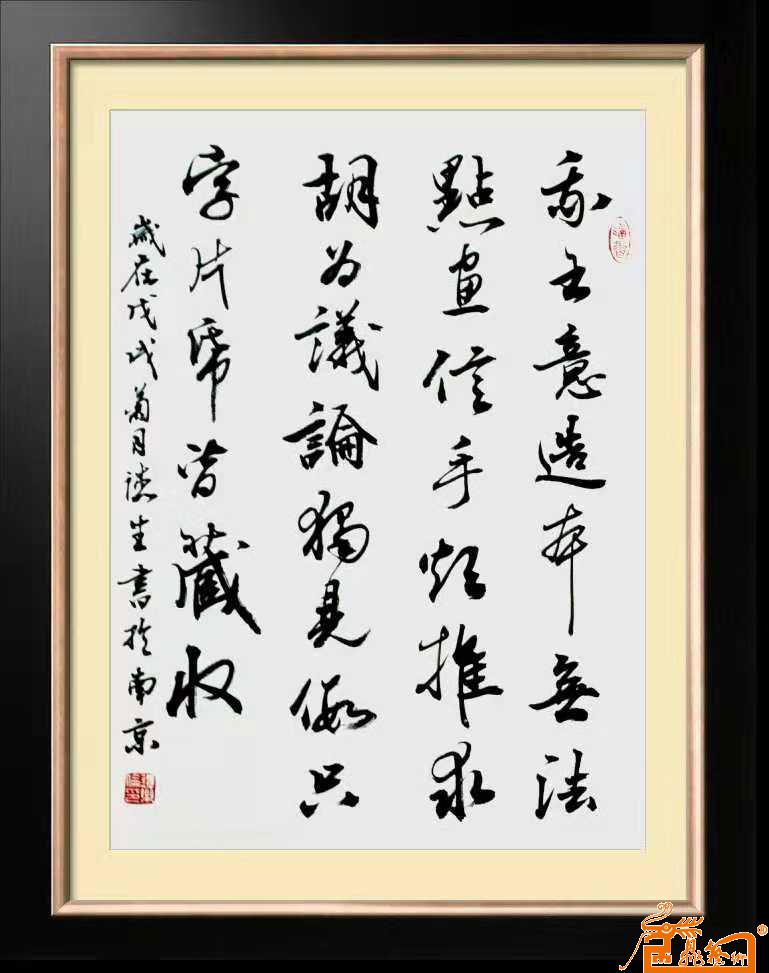 我書意造本無法
點畫信手煩推求
胡为議論獨見假只
字片紙皆藏收
歲在戊戌菊月德生書於南京